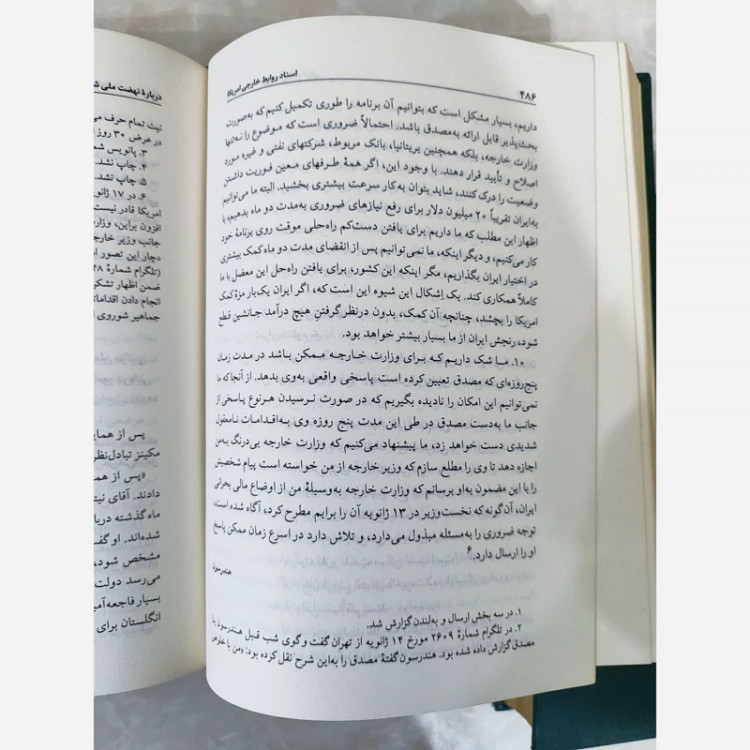 ۴۸۶
اسناد روابط خارجی امریکا
داریم، بسیار مشکل است که بتوانیم آن برنامه را طوری تکمیل کنیم که به‌صورت
بحث‌پذیر قابل ارائه به‌مصدق باشد. احتمالاً ضروری است که موضوع را نه‌تنها
وزارت خارجه، بلکه همچنین بریتانیا، بانک مربوط، شرکتهای نفتی و غیره مورد
اصلاح و تأیید قرار دهند. با وجود این، اگر همهٔ طرفهای معین فوریت داشتن
وضعیت را درک کنند، شاید بتوان به‌کار سرعت بیشتری بخشید. البته ما می‌توانیم
به‌ایران تقریباً ۲۰ میلیون دلار برای رفع نیازهای ضروری به‌مدت دو ماه بدهیم، با
اظهار این مطلب که ما داریم برای یافتن دست‌کم راه‌حلی موقت روی برنامهٔ خود
کار می‌کنیم، و دیگر اینکه، ما نمی‌توانیم پس از انقضای مدت دو ماه کمک بیشتری
در اختیار ایران بگذاریم، مگر اینکه این کشور، برای یافتن راه‌حل این معضل با ما
کاملاً همکاری کند. یک اِشکال این شیوه این است که، اگر ایران یک‌بار مزهٔ کمک
امریکا را بچشد، چنانچه آن کمک، بدون درنظر گرفتنِ هیچ درآمد جانشین قطع
شود، رنجش ایران از ما بسیار بیشتر خواهد بود.
۱۰. ما شک داریم که برای وزارت خارجه ممکن باشد در مدت زمان
پنج‌روزه‌ای که مصدق تعیین کرده است پاسخی واقعی به‌وی بدهد. از آنجا که ما
نمی‌توانیم این امکان را نادیده بگیریم که در صورت نرسیدن هرنوع پاسخی از
جانب ما به‌دست مصدق در طی این مدت پنج روزه وی به‌اقدامات نامعقول
شدیدی دست خواهد زد، ما پیشنهاد می‌کنیم که وزارت خارجه بی‌درنگ به‌من
اجازه دهد تا وی را مطلع سازم که وزیر خارجه از من خواسته است پیام شخصیش
را با این مضمون به‌او برسانم که وزارت خارجه به‌وسیلهٔ من از اوضاع مالی بحرانی
ایران، آن‌گونه که نخست‌وزیر در ۱۳ ژانویه آن را برایم مطرح کرد، آگاه شده است،
توجه ضروری را به‌مسئله مبذول می‌دارد، و تلاش دارد در اسرع زمان ممکن پاسخ
او را ارسال دارد.۶
هندرسون
۱. در سه بخش ارسال و به‌لندن گزارش شد.
۲. در تلگرام شمارهٔ ۲۶۰۹ مورخ ۱۴ ژانویه از تهران گفت وگوی شب قبل هندرسون با
مصدق گزارش داده شده بود. هندرسون گفتهٔ مصدق را به‌این شرح نقل کرده بود: «من با
دربارهٔ نهضت ملی
نیت تمام حرف
در عرض ۳۰ روز
۳. پانویس شما
۴. چاپ نشد.
۵. چاپ نشد.
۶. در ۱۷ ژانو
امریکا قادر نیست
افزون براین، وزار
جانب وزیر خارج
دچار این تصور
(تلگرام شمارهٔ
ضمن اظهار تشکر
انجام دادن اقدامات
جماهیر شوروی
پس از همای
مکینز تبادل‌نظر
«پس از همای
دادند. آقای نیتز
ماه گذشته دربار
شده‌اند. او گفـ
مشخص شود،
می‌رسد دولت
بسیار فاجعه‌آمیـ
انگلستان برای